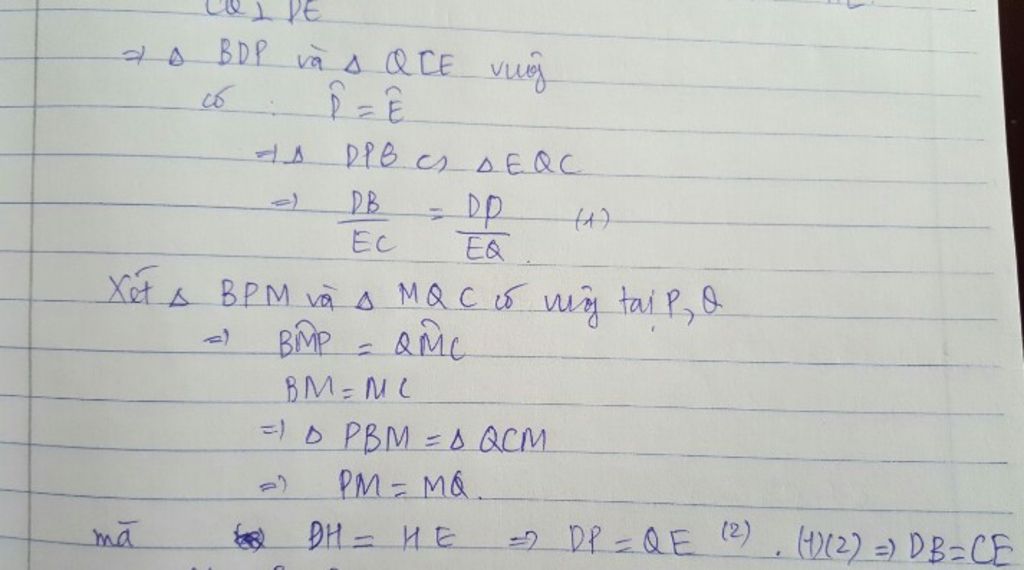 CQ ⊥ DE
=> Δ BDP và Δ QCE vuông
có : D̂ = Ê
=> Δ DPB ∽ Δ EQC
=> DB/EC = DP/EQ (1)
Xét Δ BPM và Δ MQC có vuông tại P, Q
=> BM̂P = QM̂C
BM = MC
=> Δ PBM = Δ QCM
=> PM = MQ.
mà DH = HE => DP = QE (2) . (1)(2) => DB = CE